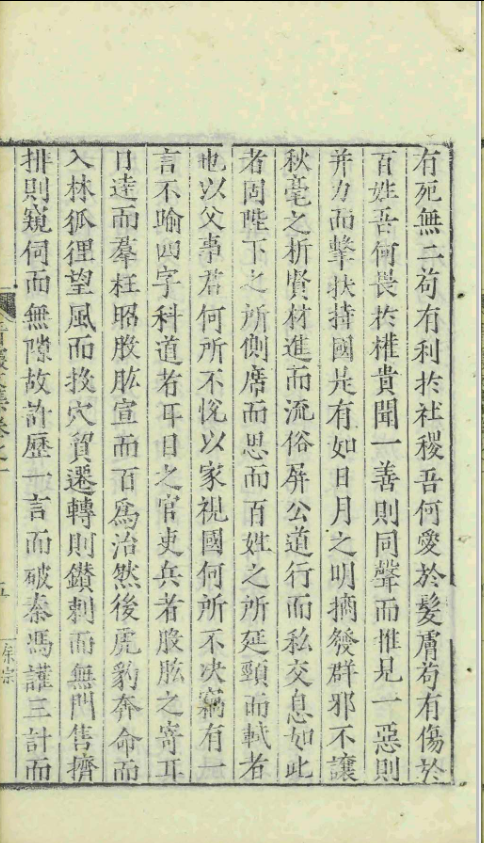 有死無二苟有利於社稷吾何愛於髮膚苟有傷於
百姓吾何畏於權貴聞一善則同聲而推見一惡則
并力而擊扶持國是有如日月之明摘發群邪不讓
秋毫之析賢材進而流俗屏公道行而私交息如此
者固陛下之所側席而思而百姓之所延頸而軾者
也以父事君何所不悅以家視國何所不決竊有一
言不喻四字科道者耳目之官吏兵者股肱之寄耳
目逹而羣枉昭股肱宣而百爲治然後虎豹奔命而
入林狐狸望風而投穴貿遷轉則鑽刺而無門售擠
排則窺伺而無隙故許歷一言而破秦馮讙三計而